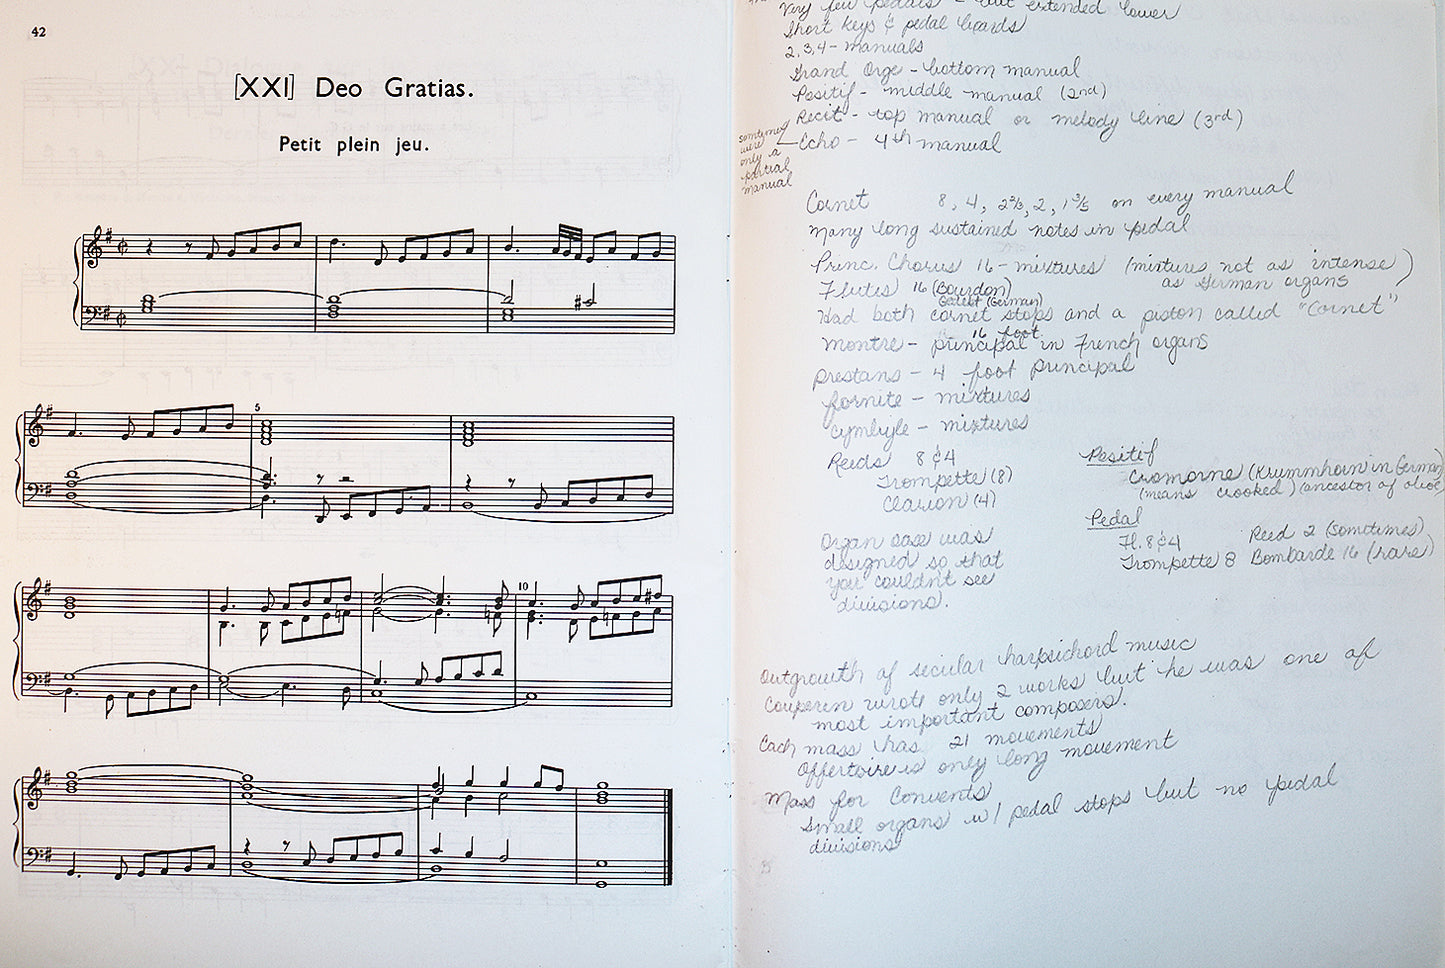 42
[XXI] Deo Gratias.
Petit plein jeu.
5
10
Very few pedals - but extended lower
Short keys & pedal boards
2,3,4 - manuals
Grand Orge - bottom manual
Positif - middle manual (2nd)
Recit - top manual or melody line (3rd)
Echo - 4th manual
sometimes
were
only a
partial
manual
Cornet 8, 4, 2 2/3, 2, 1 3/5 on every manual
Many long sustained notes in pedal
Princ. Chorus 16 - mixtures (mixtures not as intense
as German organs)
Flutes 16 (Bourdon)
(German)
Had both cornet stops and a piston called "Cornet"
16 foot
Montre - principal in French organs
prestans - 4 foot principal
fornite - mixtures
cymbyle - mixtures
Reeds 8 & 4
Trompette (8)
Clarion (4)
Positif
Cromorne (Krummhorn in German)
(means crooked) (ancestor of oboe)
Pedal
Fl. 8 & 4 Reed 2 (sometimes)
Trompette 8 Bombarde 16 (rare)
Organ case was
designed so that
you couldn't see
divisions.
Outgrowth of secular harpsichord music
Couperin wrote only 2 works but he was one of
most important composers.
Each mass has 21 movements
Offertoire is only long movement
Mass for Convents
Small organs w/ pedal stops but no pedal
divisions